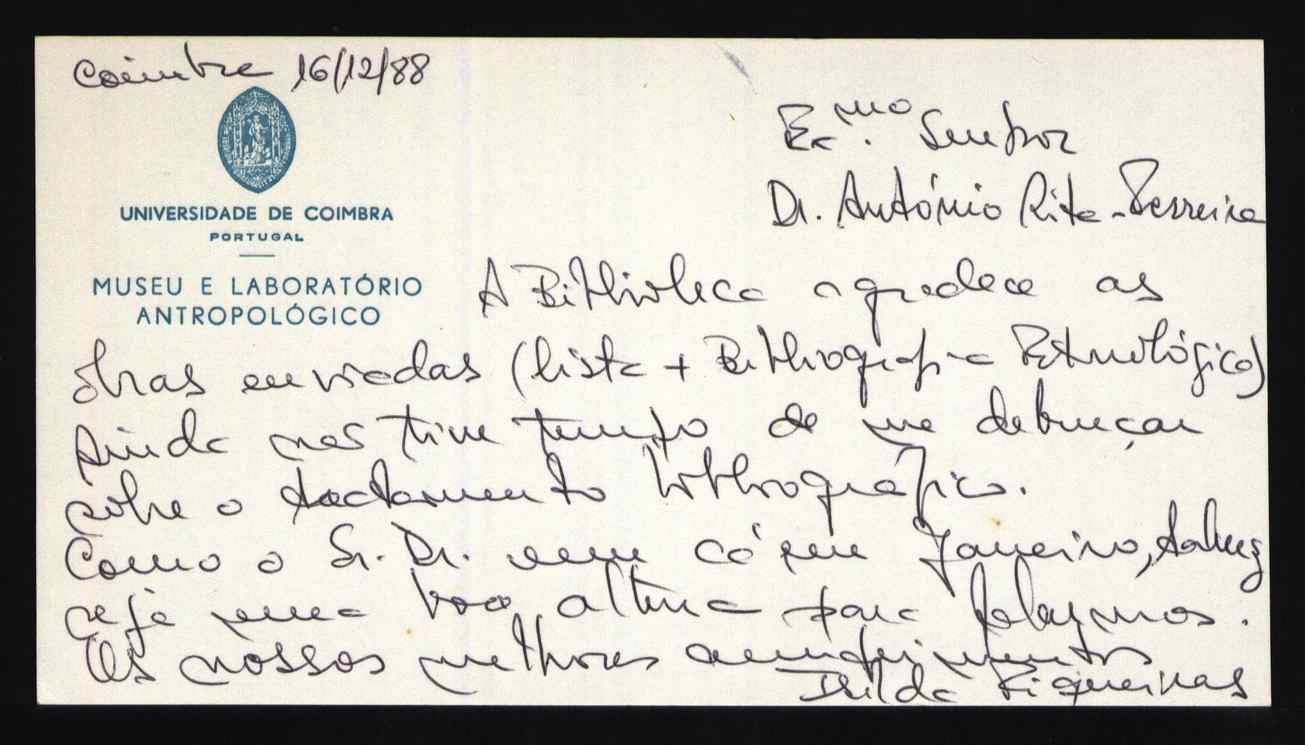 Coimbra 16/12/88
UNIVERSIDADE DE COIMBRA
PORTUGAL
MUSEU E LABORATÓRIO
ANTROPOLÓGICO
Ex.mo Senhor
Dr. António Rita-Ferreira
A Biblioteca agradece as
obras enviadas (lista + Bibliografia Etnológica)
ainda não tive tempo de me debruçar
sobre o tratamento bibliográfico.
Como o Sr. Dr. vem cá em Janeiro, talvez
seja uma boa altura para falarmos.
Os nossos melhores cumprimentos
Figueiras